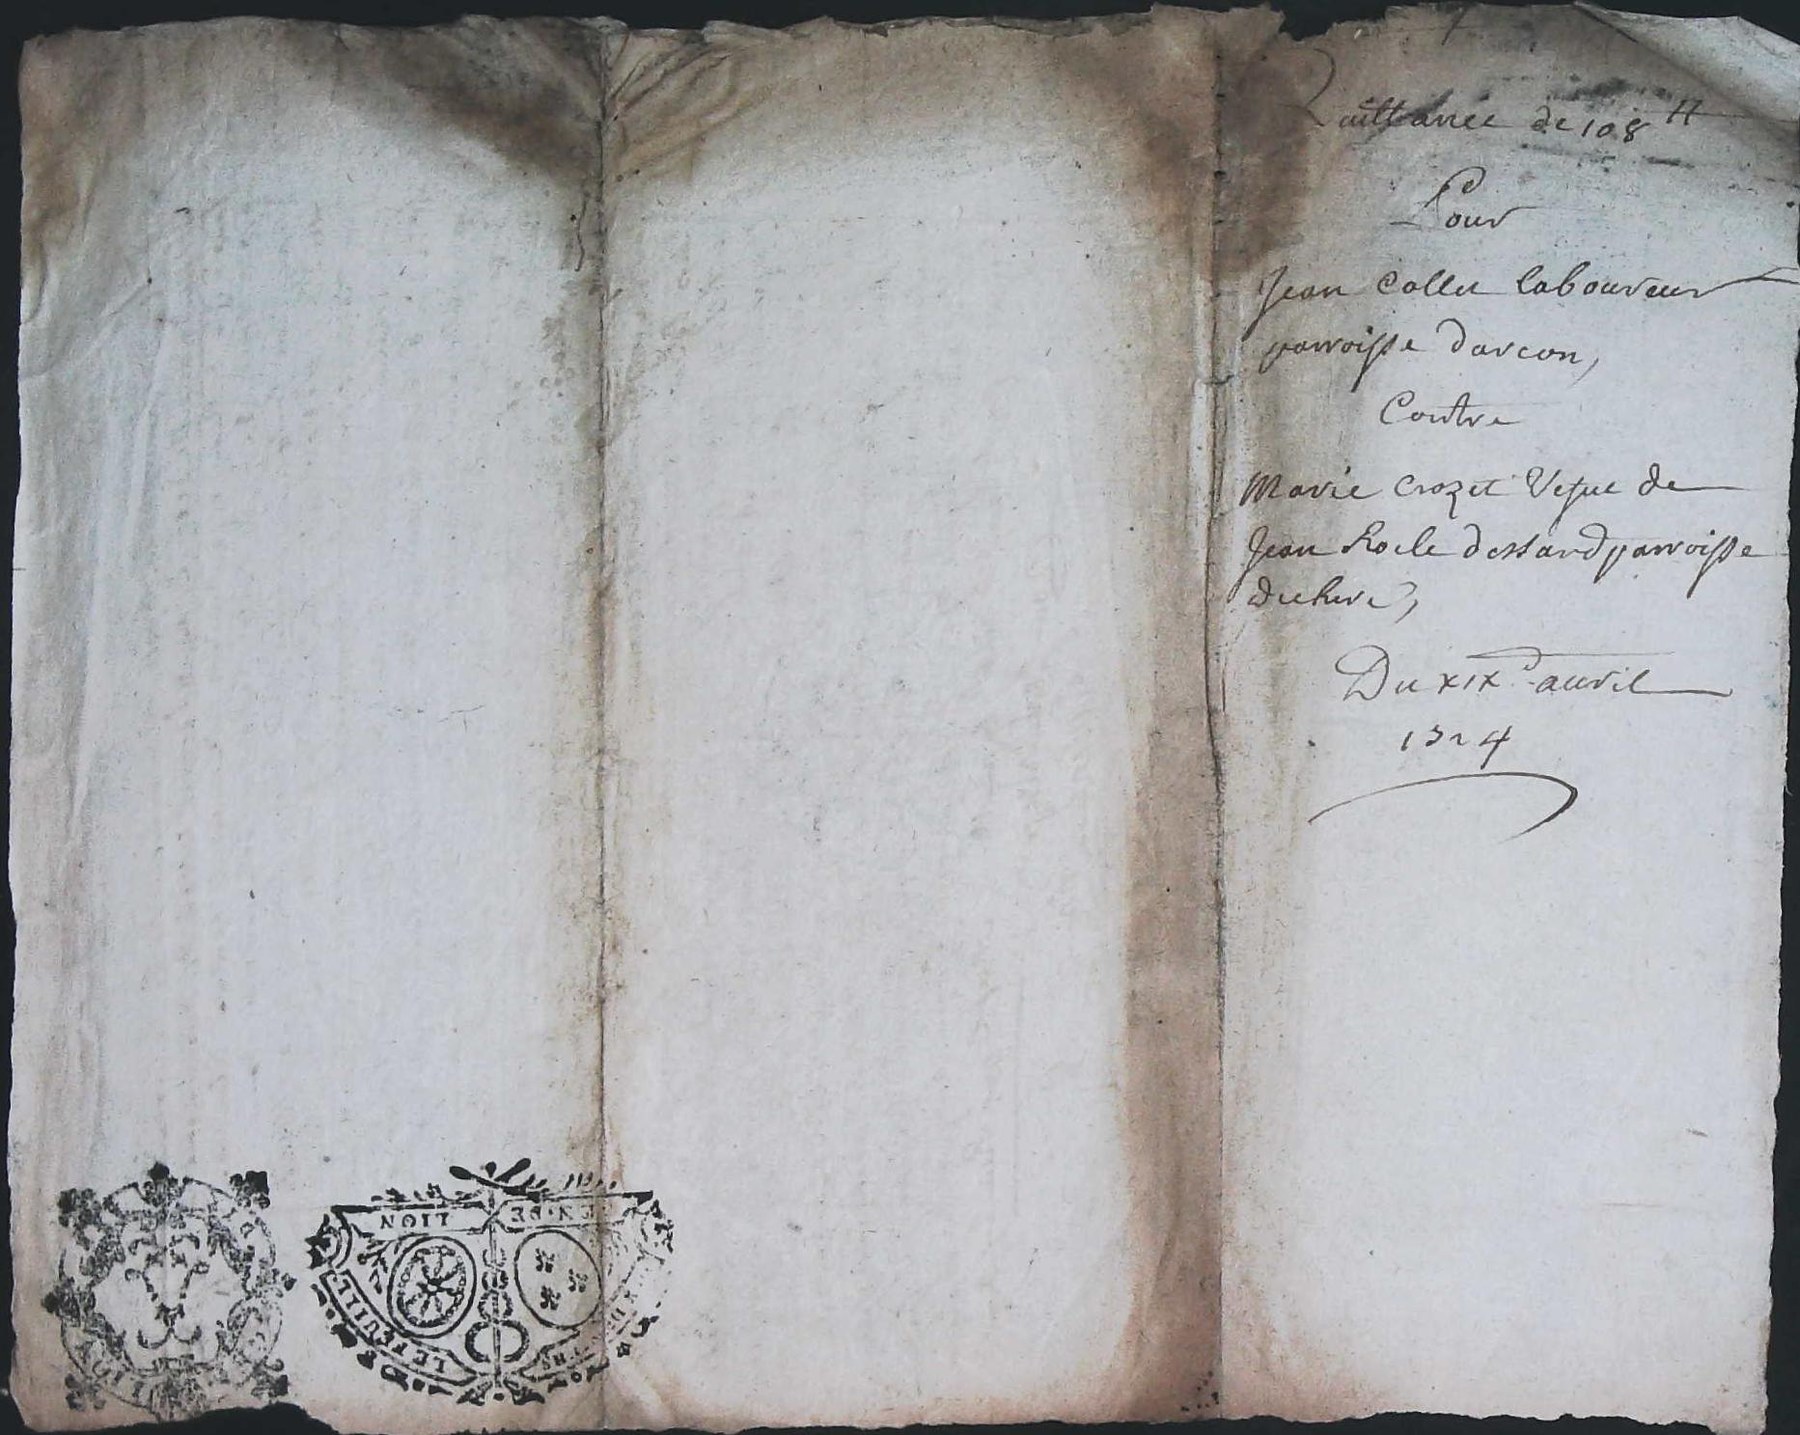 Quittance de 108 ₶
Pour
Jean Collet laboureur
parroisse darcon,
Contre
Marie Crozet Vefue de
Jean dessard parroisse
Du XIX auril
1724
GEN · DE LION
LE FEUILL